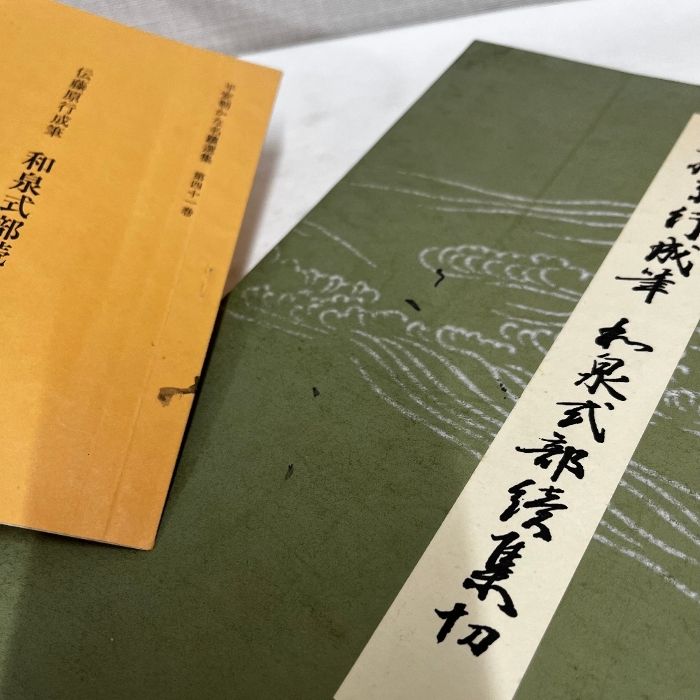 平安朝かな名蹟選集 第四十一巻
伝藤原行成筆 和泉式部続
行成筆 和泉式部續集切